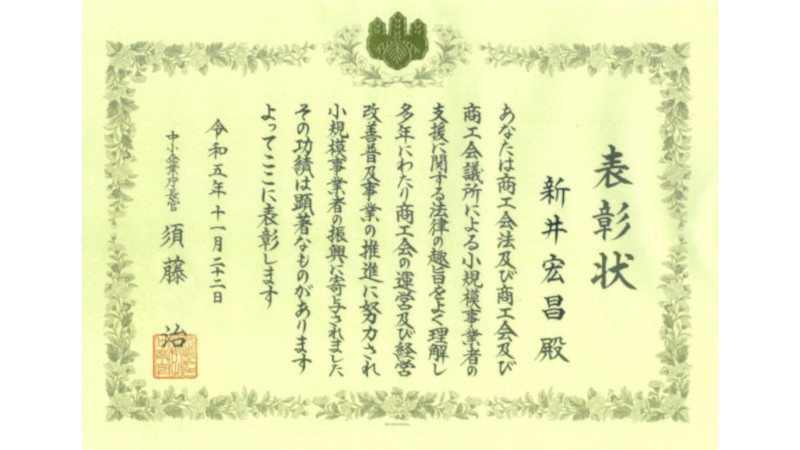 表彰状
新井宏昌 殿
あなたは商工会法及び商工会及び
商工会議所による小規模事業者の
支援に関する法律の趣旨をよく理解し
多年にわたり商工会の運営及び経営
改善普及事業の推進に努力され
小規模事業者の振興に寄与されました
その功績は顕著なものがあります
よってここに表彰します
令和五年十一月二十二日
中小企業庁長官 須藤 治